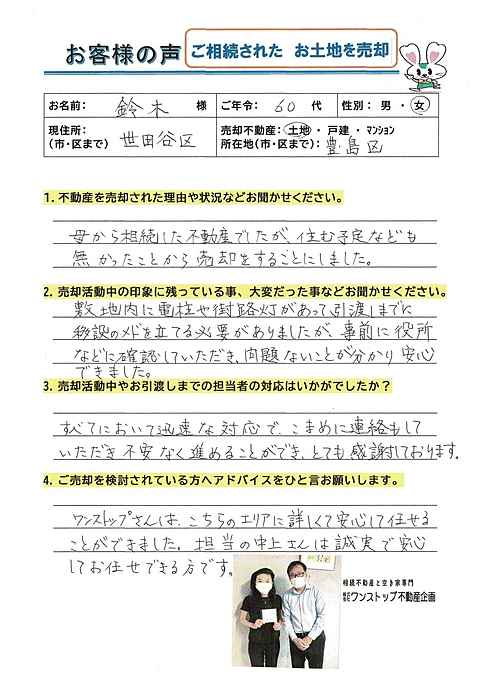 お客様の声 ご相続された お土地を売却
お名前: 鈴木 様 ご年令: 60 代 性別: 男 ・ 女
現住所: 世田谷区 売却不動産: 土地 ・ 戸建 ・ マンション
(市・区まで) 所在地(市・区まで): 豊島区
1. 不動産を売却された理由や状況などお聞かせください。
母から相続した不動産でしたが、住む予定なども
無かったことから売却をすることにしました。
2. 売却活動中の印象に残っている事、大変だった事などお聞かせください。
敷地内に電柱や街路灯があって、引渡しまでに
移設のメドを立てる必要がありましたが、事前に役所
などに確認していただき、問題ないことが分かり安心
できました。
3. 売却活動中やお引渡しまでの担当者の対応はいかがでしたか?
すべてにおいて迅速な対応で、こまめに連絡もして
いただき不安なく進めることができ、とても感謝しております。
4. ご売却を検討されている方へアドバイスをひと言お願いします。
ワンストップさんは、こちらのエリアに詳しくて安心して任せる
ことができました。担当の中上さんは誠実で安心
してお任せできる方です。
相続不動産と空き家専門
株式会社ワンストップ不動産企画